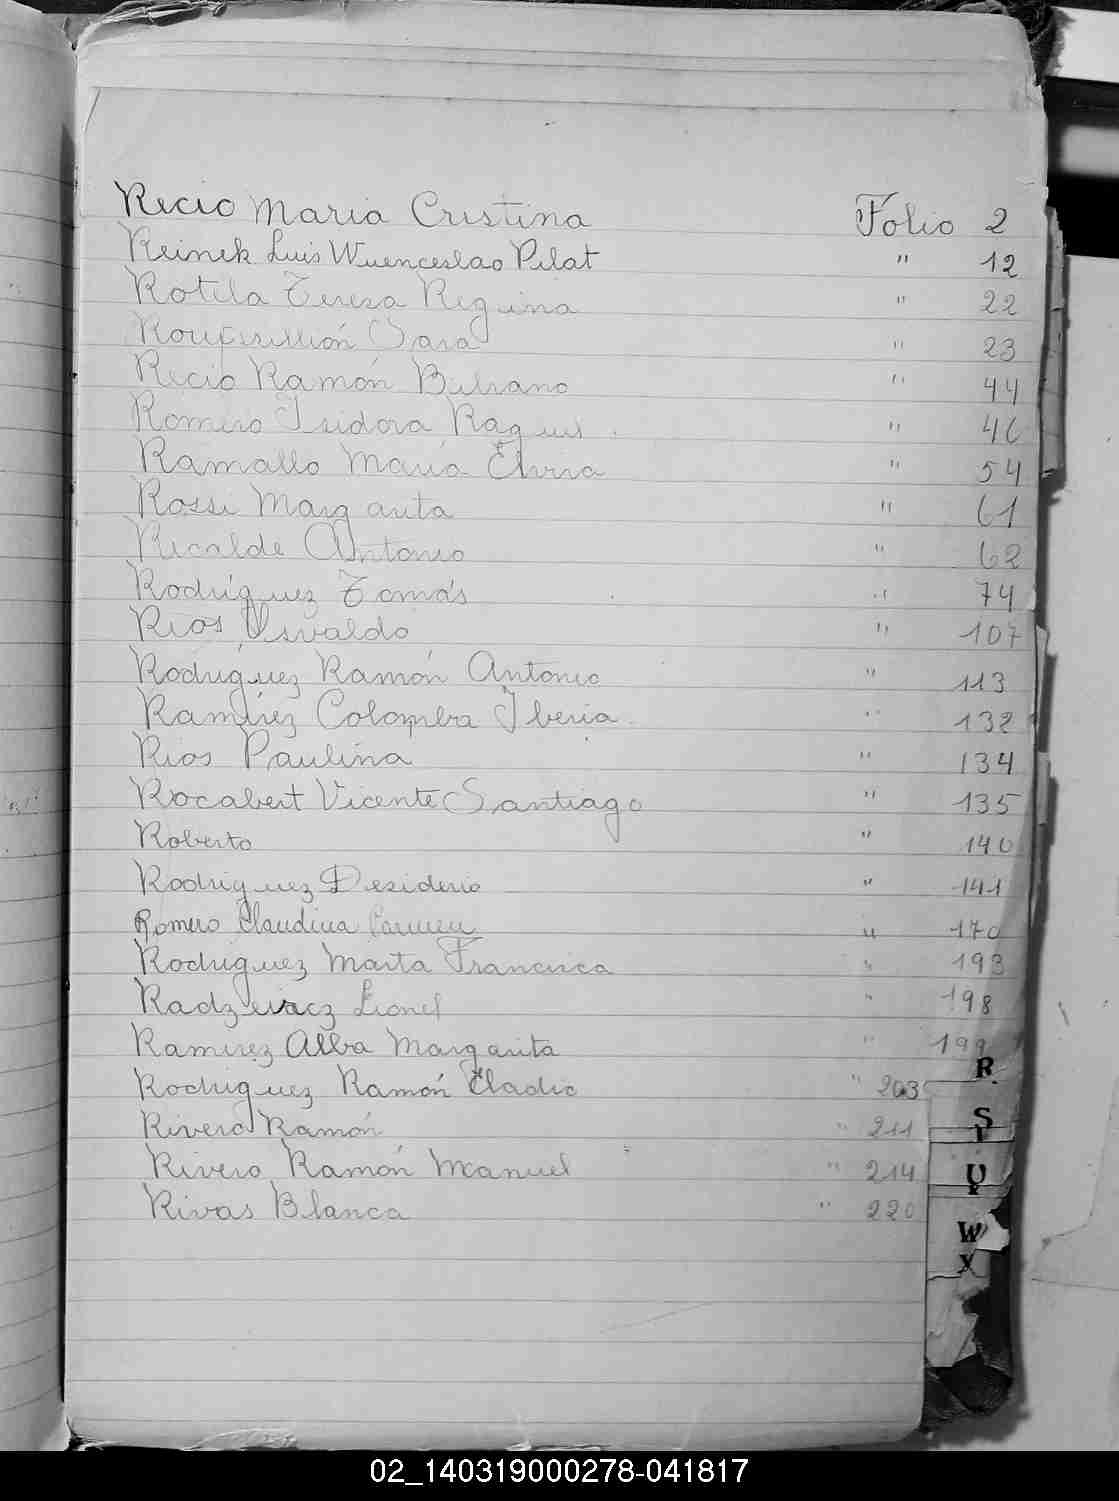 Recio Maria Cristina Folio 2
Reinek Luis Wuenceslao Pilat " 12
Rotela Teresa Regina " 22
Sara " 23
Recio Ramón Belsano " 44
Romero Isidora Raquel " 46
Ramallo María Elvira " 54
Rossi Margarita " 61
Ricalde Antonio " 62
Rodríguez Tomás " 74
Rios Osvaldo " 107
Rodríguez Ramón Antonio " 113
Ramírez Colomba Iberia " 132
Rios Paulina " 134
Rocabert Vicente Santiago " 135
Roberto " 140
Rodriguez Desiderio " 141
Romero Claudina Carmen " 170
Rodriguez Marta Francisca " 193
Lionel " 198
Ramirez Alba Margarita " 199
Rodriguez Ramón Eladio " 203
Rivero Ramón " 211
Rivero Ramón Manuel " 214
Rivas Blanca " 220
R
S
U
W
X
02_140319000278-041817